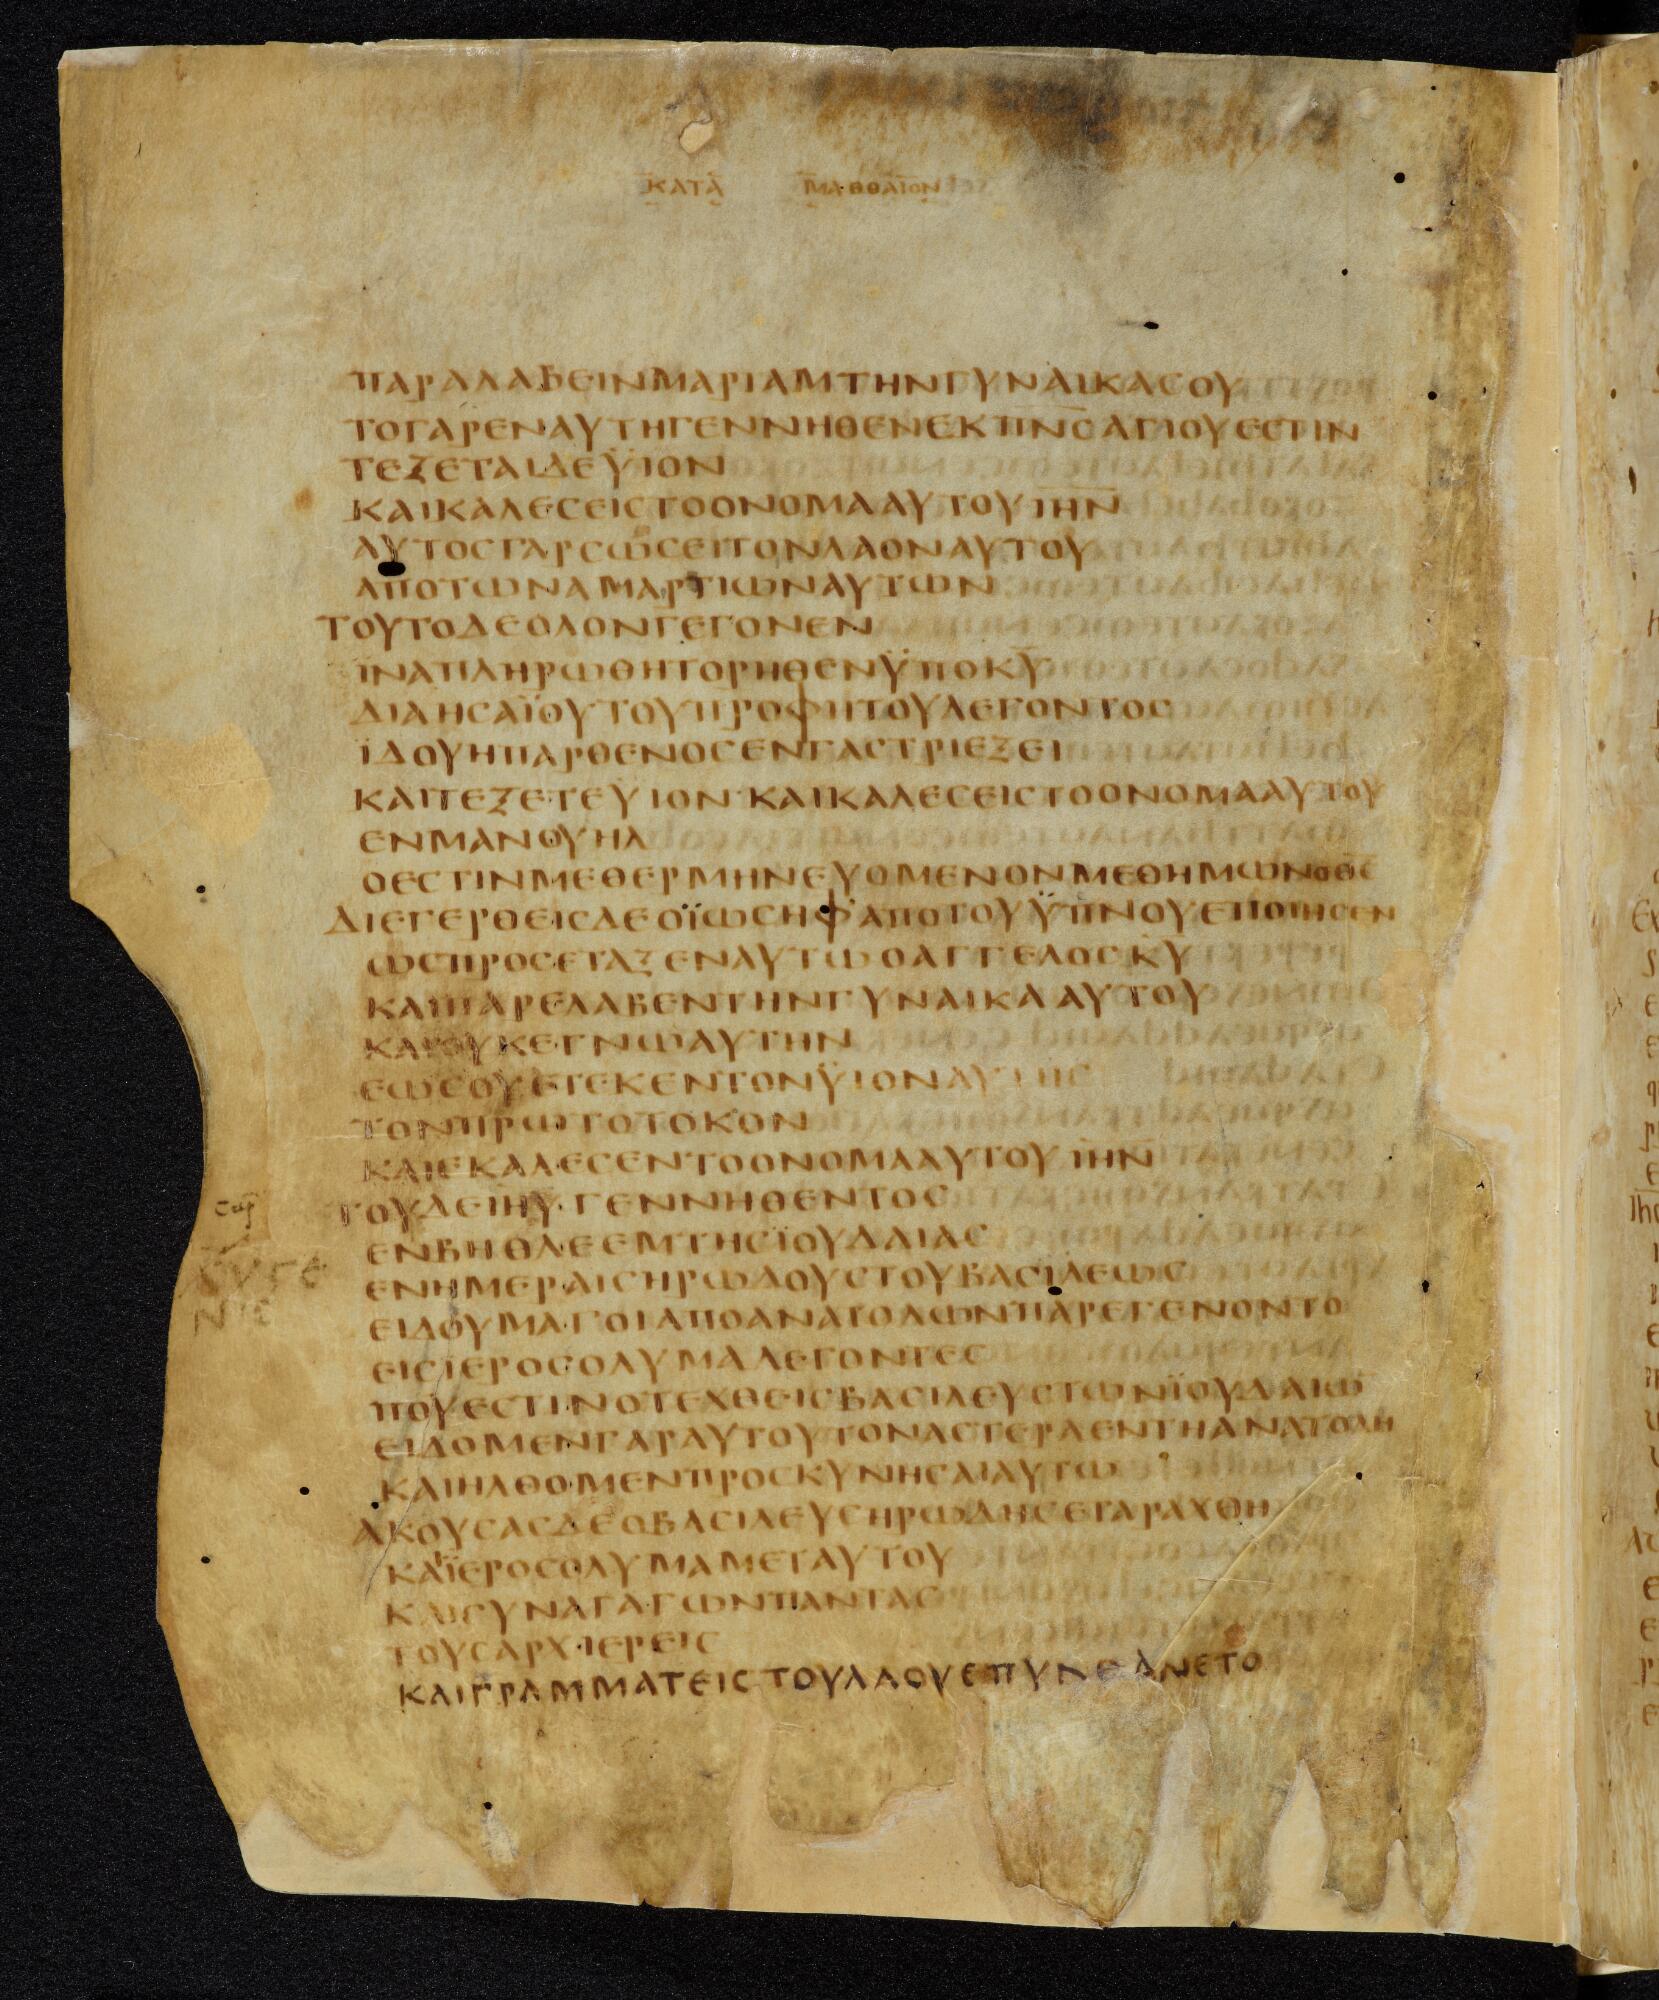 ΚΑΤΑ ΜΑΘΘΑΙΟΝ
ΠΑΡΑΛΑΒΕΙΝΜΑΡΙΑΜΤΗΝΓΥΝΑΙΚΑСΟΥ
ΤΟΓΑΡΕΝΑΥΤΗΓΕΝΝΗΘΕΝΕΚΠ̅Ν̅С̅ΑΓΙΟΥΕСΤΙΝ
ΤΕΞΕΤΑΙΔΕΥΪΟΝ
ΚΑΙΚΑΛΕСΕΙСΤΟΟΝΟΜΑΑΥΤΟΥΙ̅Η̅Ν̅
ΑΥΤΟСΓΑΡСΩСΕΙΤΟΝΛΑΟΝΑΥΤΟΥ
ΑΠΟΤΩΝΑΜΑΡΤΙΩΝΑΥΤΩΝ
ΤΟΥΤΟΔΕΟΛΟΝΓΕΓΟΝΕΝ
ΪΝΑΠΛΗΡΩΘΗΤΟΡΗΘΕΝΫΠΟΚ̅Υ̅
ΔΙΑΗСΑΪΟΥΤΟΥΠΡΟΦΗΤΟΥΛΕΓΟΝΤΟС
ΪΔΟΥΗΠΑΡΘΕΝΟСΕΝΓΑСΤΡΙΕΞΕΙ
ΚΑΙΤΕΞΕΤΕΥΙΟΝ·ΚΑΙΚΑΛΕСΕΙСΤΟΟΝΟΜΑΑΥΤΟΥ
ΕΝΜΑΝΟΥΗΛ
ΟΕСΤΙΝΜΕΘΕΡΜΗΝΕΥΟΜΕΝΟΝΜΕΘΗΜΩΝΟΘ̅С̅
ΔΙΕΓΕΡΘΕΙСΔΕΟΪΩСΗΦ᾿ΑΠΟΤΟΥΫΠΝΟΥΕΠΟΙΗСΕΝ
ΩСΠΡΟСΕΤΑΞΕΝΑΥΤΩΟΑΓΓΕΛΟСΚ̅Υ̅
ΚΑΙΠΑΡΕΛΑΒΕΝΤΗΝΓΥΝΑΙΚΑΑΥΤΟΥ
ΚΑΙΟΥΚΕΓΝΩΑΥΤΗΝ
ΕΩСΟΥΕΤΕΚΕΝΤΟΝΫΙΟΝΑΥΤΗС
ΤΟΝΠΡΩΤΟΤΟΚΟΝ
ΚΑΙΕΚΑΛΕСΕΝΤΟΟΝΟΜΑΑΥΤΟΥΙ̅Η̅Ν̅
ΤΟΥΔΕΙ̅Η̅Υ̅·ΓΕΝΝΗΘΕΝΤΟС
ΕΝΒΗΘΛΕΕΜΤΗСΪΟΥΔΑΙΑС
ΕΝΗΜΕΡΑΙСΗΡΩΔΟΥСΤΟΥΒΑСΙΛΕΩС
ΕΙΔΟΥΜΑΓΟΙΑΠΟΑΝΑΤΟΛΩΝΠΑΡΕΓΕΝΟΝΤΟ
ΕΙСΙΕΡΟСΟΛΥΜΑΛΕΓΟΝΤΕС
ΠΟΥΕСΤΙΝΟΤΕΧΘΕΙСΒΑСΙΛΕΥСΤΩΝΪΟΥΔΑΙΩ̅
ΕΙΔΟΜΕΝΓΑΡΑΥΤΟΥΤΟΝΑСΤΕΡΑΕΝΤΗΑΝΑΤΟΛΗ
ΚΑΙΗΛΘΟΜΕΝΠΡΟСΚΥΝΗСΑΙΑΥΤΩ
ΑΚΟΥСΑСΔΕΟΒΑСΙΛΕΥСΗΡΩΔΗСΕΤΑΡΑΧΘΗ
ΚΑΪΕΡΟСΟΛΥΜΑΜΕΤΑΥΤΟΥ
ΚΑΙСΥΝΑΓΑΓΩΝΠΑΝΤΑС
ΤΟΥСΑΡΧΙΕΡΕΙС
ΚΑΙΓΡΑΜΜΑΤΕΙСΤΟΥΛΑΟΥΕΠΥΝΘΑΝΕΤΟ